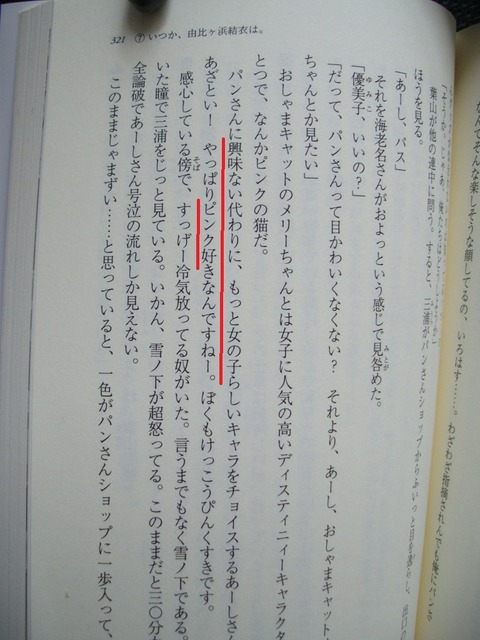 321 ⑦ いつか、由比ヶ浜結衣は。
なんでそんな楽しそうな顔してるの、いろはす……。わざわざ指摘されんでも俺にパンさ
葉山が他の連中に問う。すると、三浦がパンさんショップからふいっと目を逸らし、出口
ほうを見る。
「あーし、パス」
それを海老名さんがおよっという感じで見咎めた。
「優美子、いいの？」
「だって、パンさんって目かわいくなくない？　それより、あーし、おしゃまキャット、
ちゃんとか見たい」
おしゃまキャットのメリーちゃんとは女子に人気の高いディスティニーキャラクタ
とつで、なんかピンクの猫だ。
パンさんに興味ない代わりに、もっと女の子らしいキャラをチョイスするあーしさん
あざとい！　やっぱりピンク好きなんですねー。ぼくもけっこうぴんくすきです。
感心している傍で、すっげー冷気放ってる奴がいた。言うまでもなく雪ノ下である。
いた瞳で三浦をじっと見ている。いかん、雪ノ下が超怒ってる。このままだと三〇分
全論破であーしさん号泣の流れしか見えない。
このままじゃまずい……と思っていると、一色がパンさんショップに一歩入って、